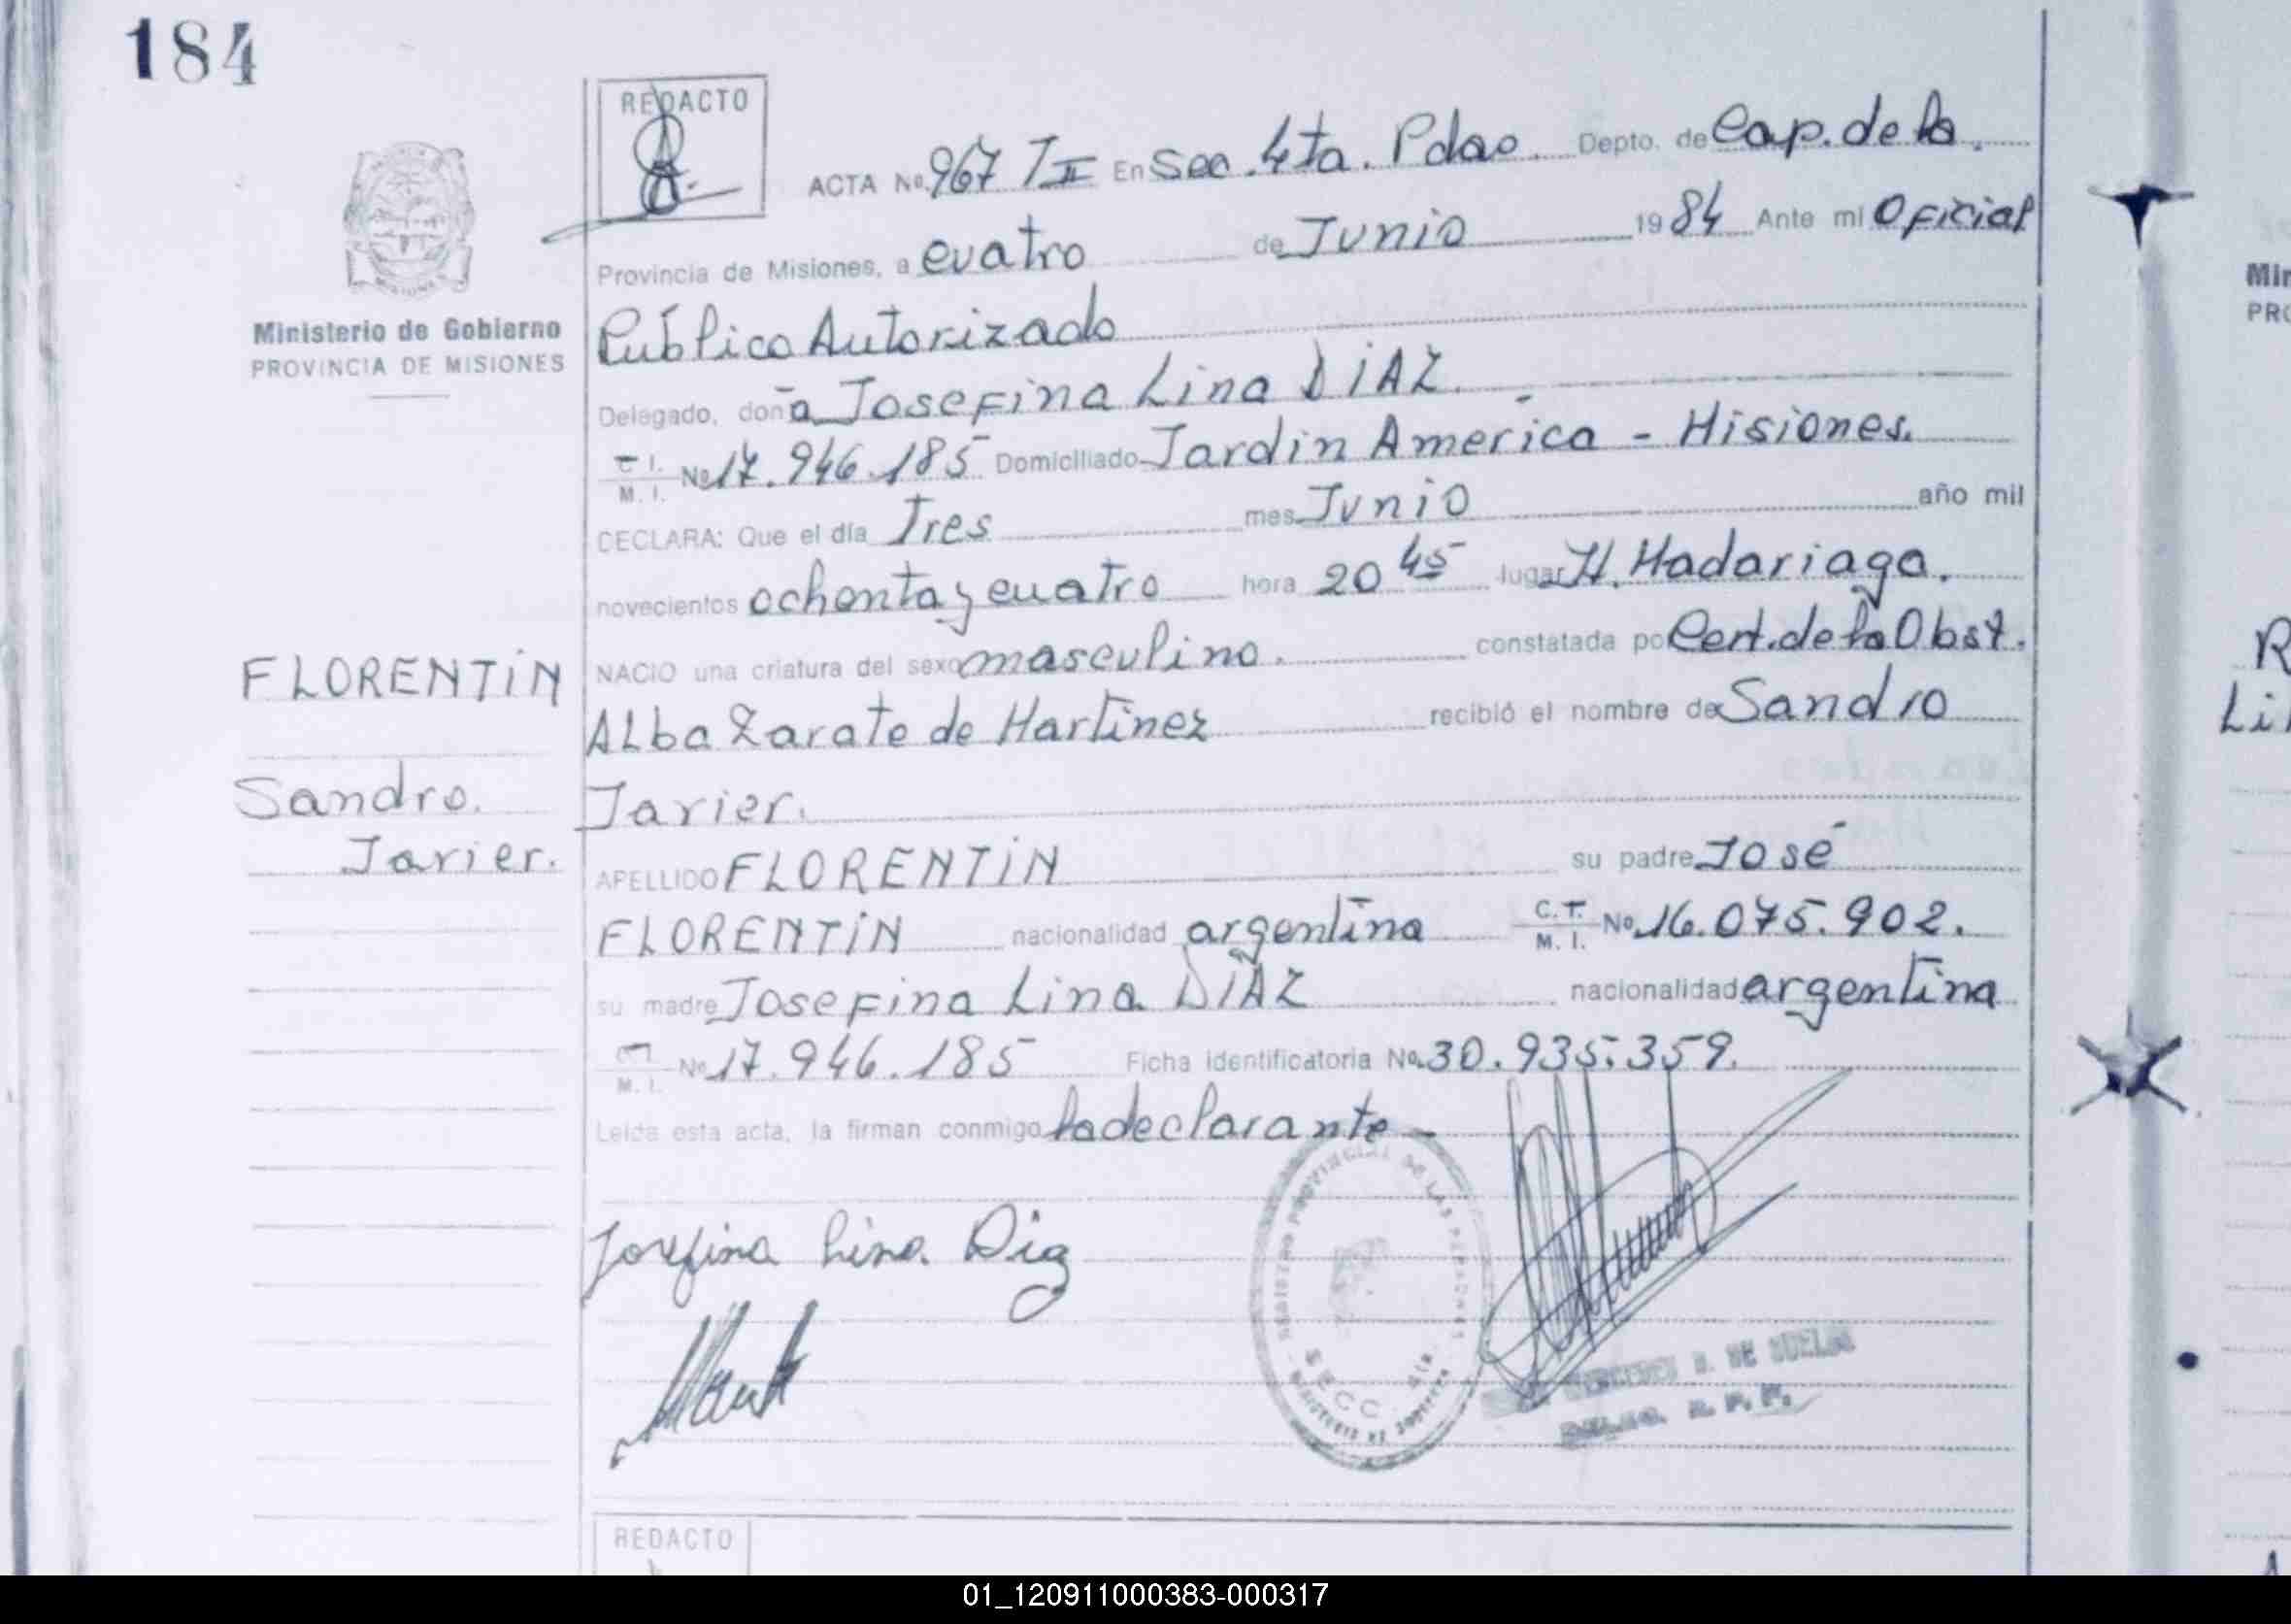 184
REDACTO
ACTA No. 967 T II En Sec. 4ta. Pdas. Depto. de Cap. de la
Provincia de Misiones, a cuatro de Junio 1984 Ante mi Oficial
Ministerio de Gobierno
PROVINCIA DE MISIONES
Público Autorizado
Delegado, doña Josefina Lina DIAZ.
C. I. M. I. No 17.946.185 Domiciliado Jardín América - Misiones.
DECLARA: Que el día Tres mes Junio año mil
novecientos ochenta y cuatro hora 20 45 lugar H. Madariaga.
NACIO una criatura del sexo masculino. constatada po Cert. de la Obst.
FLORENTIN
Alba Zarate de Martínez recibió el nombre de Sandro
Sandro.
Javier.
Javier.
APELLIDO FLORENTIN su padre José
FLORENTIN nacionalidad argentina C. I. M. I. No 16.075.902.
su madre Josefina Lina DIAZ nacionalidad argentina
M. I. No 17.946.185 Ficha identificatoria No. 30.935.359.
Leída esta acta, la firman conmigo la declarante
Josefina Lina Diaz
REGISTRO PROVINCIAL DE LAS PERSONAS
SECC. 4ta.
MINISTERIO DE GOBIERNO
REDACTO
Min
PRO
R
Li
01_120911000383-000317